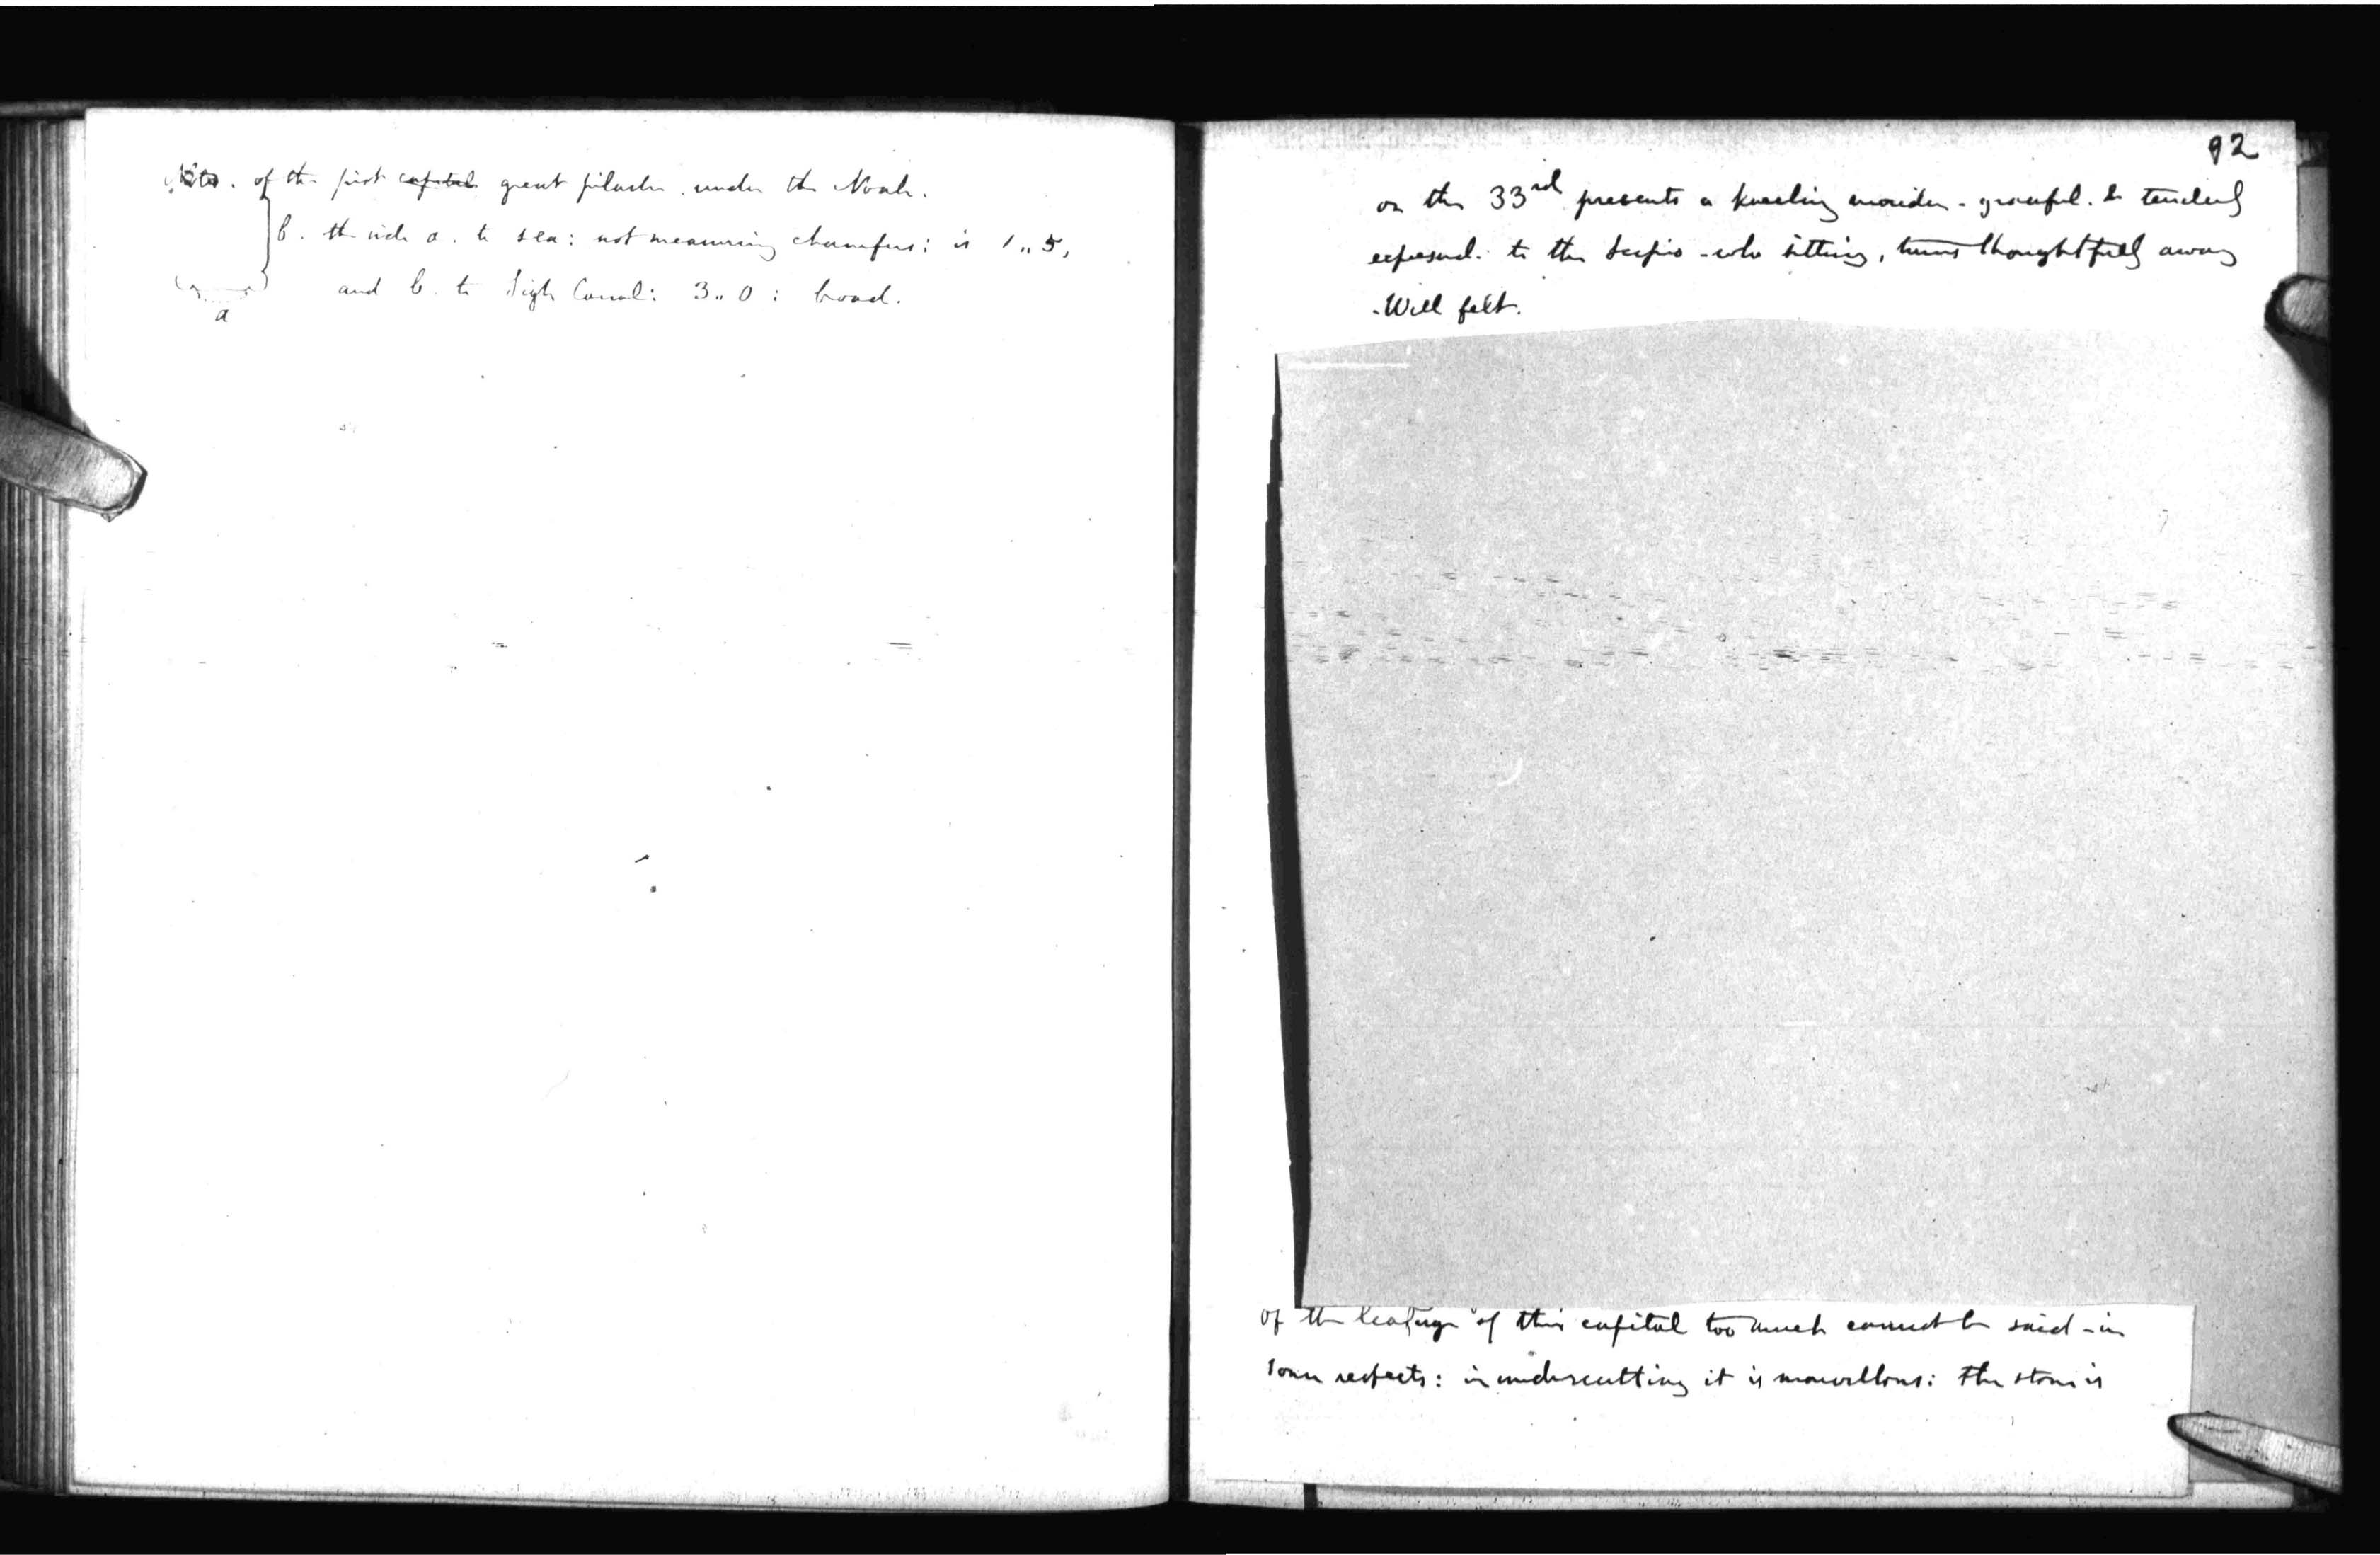 Note. of the first capital great pilaster. under the Noah.
b. the side a. to sea: not measuring chamfers: is 1,,5,
and b. to Sigh Canal: 3,,0: broad.
a
92
on the 33rd presents a kneeling maiden - graceful. & tenderly
expressed. to the Scipio - who sitting, turns thoughtfully away
- Well felt.
of the leafage of this capital too much cannot be said - in
some respects: in undercutting it is marvellous: the stone is